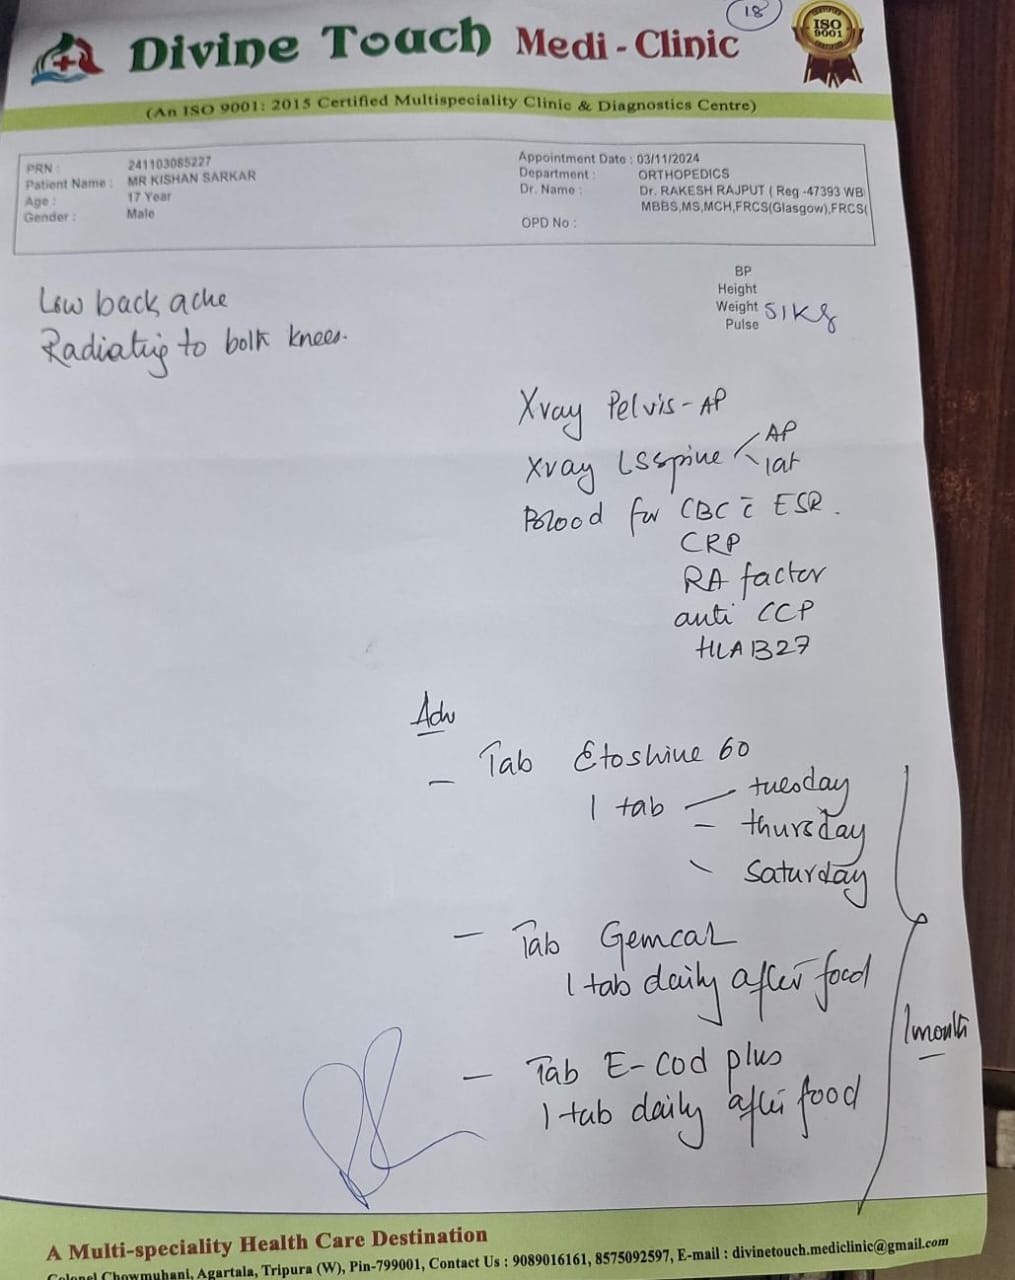 18
ISO
9001
Divine Touch Medi-Clinic
(An ISO 9001: 2015 Certified Multispeciality Clinic & Diagnostics Centre)
PRN : 241103085227
Patient Name : MR KISHAN SARKAR
Age : 17 Year
Gender : Male
Appointment Date : 03/11/2024
Department : ORTHOPEDICS
Dr. Name : Dr. RAKESH RAJPUT ( Reg -47393 WB
MBBS,MS,MCH,FRCS(Glasgow),FRCS(
OPD No :
BP
Height
Weight 51Kg
Pulse
Low back ache
Radiating to both knees.
Xray Pelvis - AP
Xray LSspine AP
lat
Blood for CBC c̄ ESR.
CRP
RA factor
anti CCP
HLA B27
Adv
- Tab Etoshine 60
1 tab - tuesday
- thursday
- Saturday
- Tab Gemcal
1 tab daily after food
1 month
- Tab E-Cod plus
1 tab daily after food
A Multi-speciality Health Care Destination
Colonel Chowmuhani, Agartala, Tripura (W), Pin-799001, Contact Us : 9089016161, 8575092597, E-mail : divinetouch.mediclinic@gmail.com